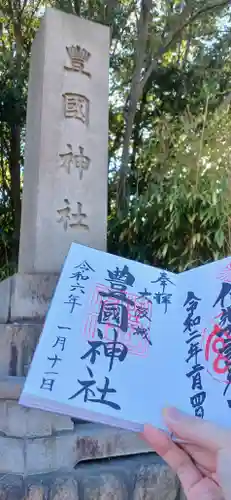 豊國神社
奉拝
大阪城
豊國神社
令和六年
一月十一日
令和二年
六月四